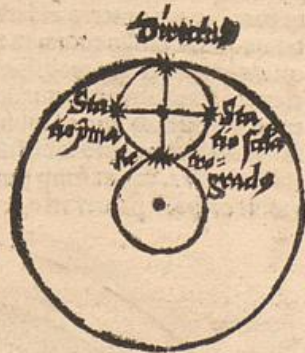 Directus
Sta
tio p̄ma
Sta
tio scd̄a
Re tro=
grado